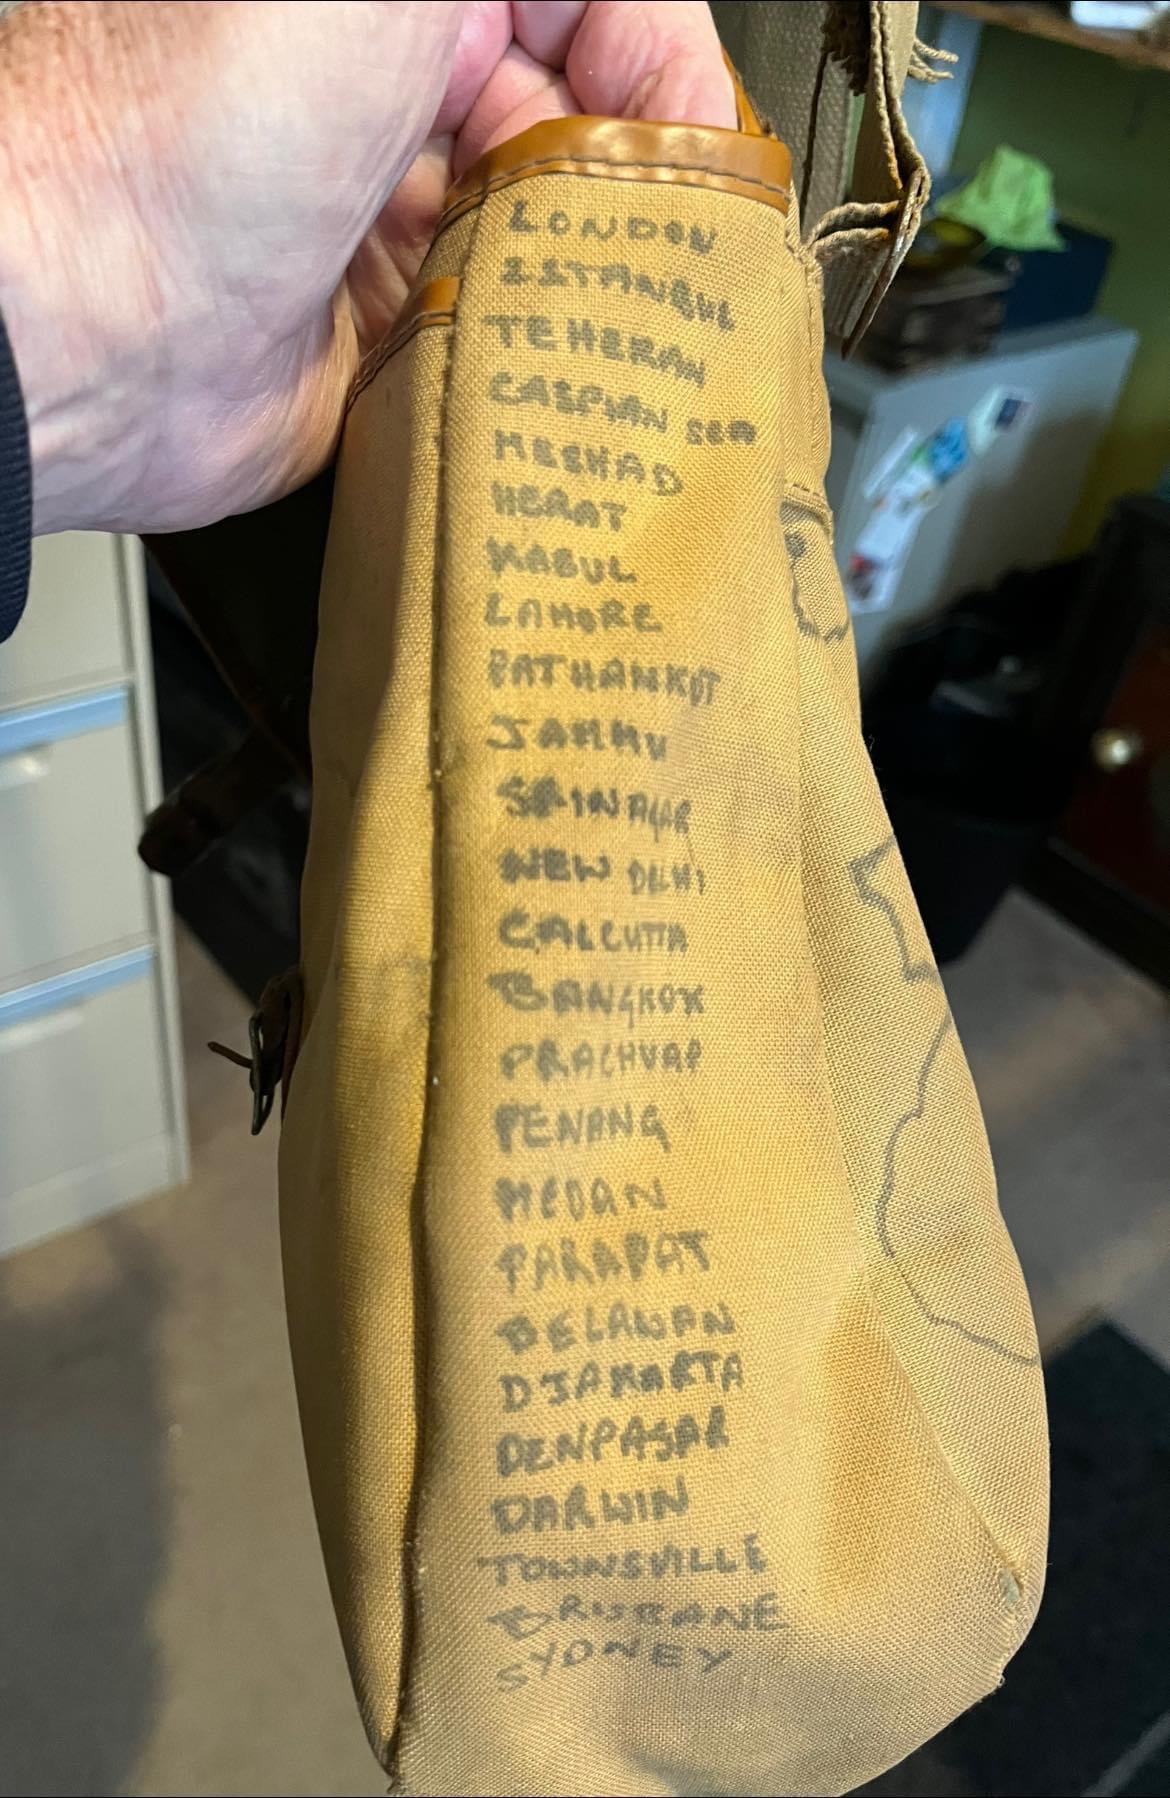 LONDON
ISTANBUL
TEHERAN
CASPIAN SEA
MESHAD
HERAT
KABUL
LAHORE
PATHANKOT
JAMMU
SRINAGAR
NEW DELHI
CALCUTTA
BANGKOK
PRACHUAP
PENANG
MEDAN
PARAPAT
BELAWAN
DJAKARTA
DENPASAR
DARWIN
TOWNSVILLE
BRISBANE
SYDNEY